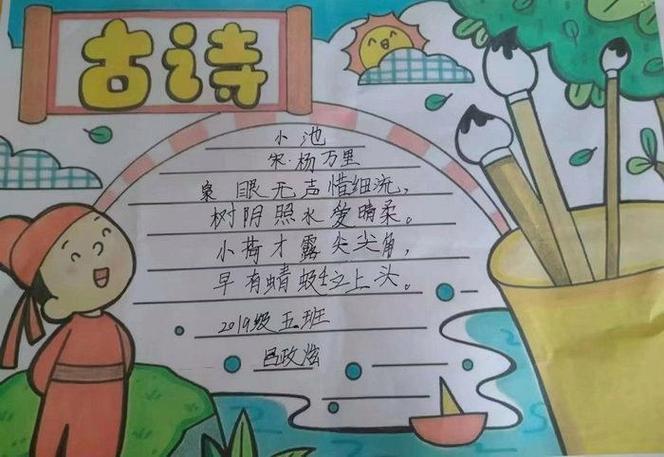 古诗
小池
宋·杨万里
泉眼无声惜细流，
树阴照水爱晴柔。
小荷才露尖尖角，
早有蜻蜓立上头。
2019级五班
吕政炫